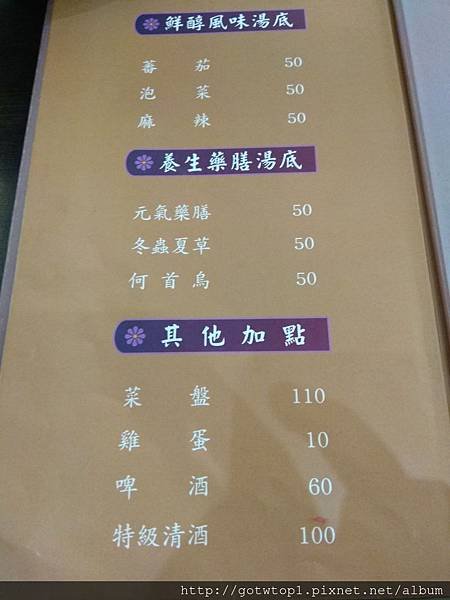 鮮醇風味湯底
蕃茄 50
泡菜 50
麻辣 50
養生藥膳湯底
元氣藥膳 50
冬蟲夏草 50
何首烏 50
其他加點
菜盤 110
雞蛋 10
啤酒 60
特級清酒 100
http://gotwtop1.pixnet.net/album